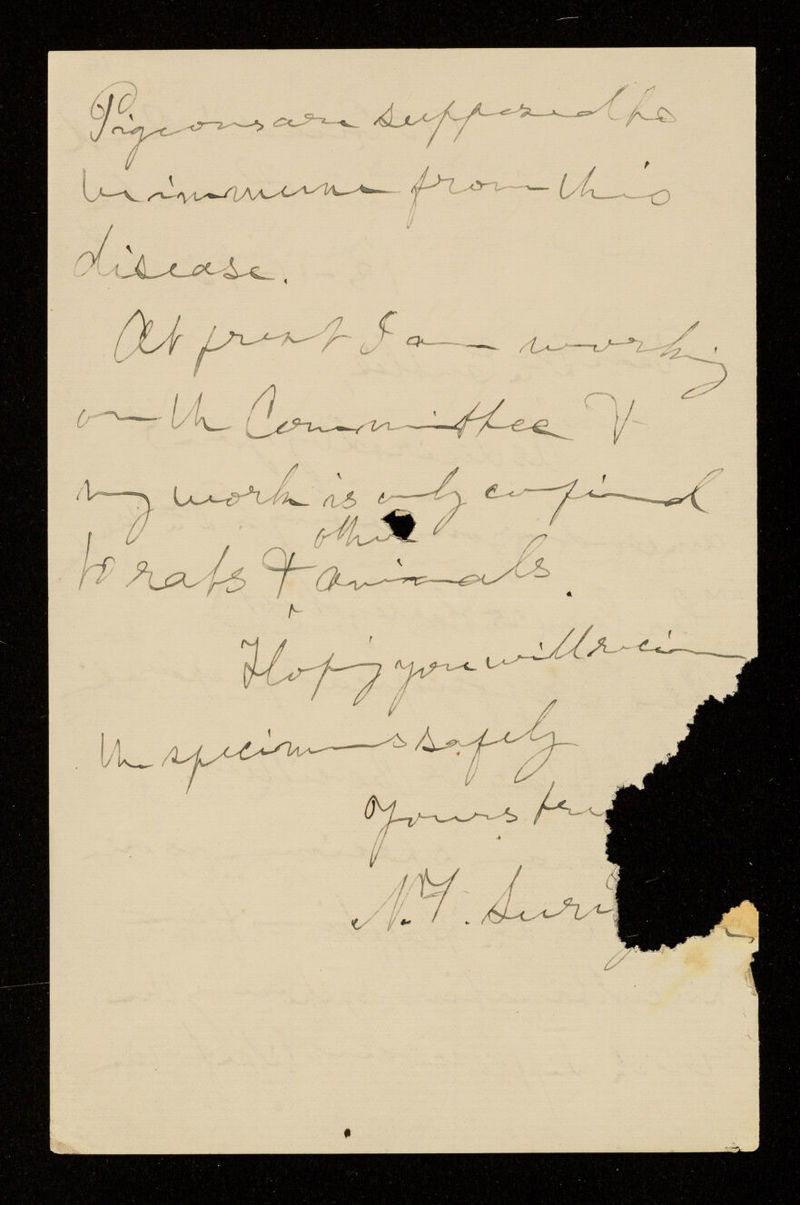 Pigeons are supposed to
be immune from this
disease.
At presnt I am working
on the Committee &
my work is only confined
to rats & other animals.
Hoping you will receive
the specimens safely
Yours tru
N. F. Suri